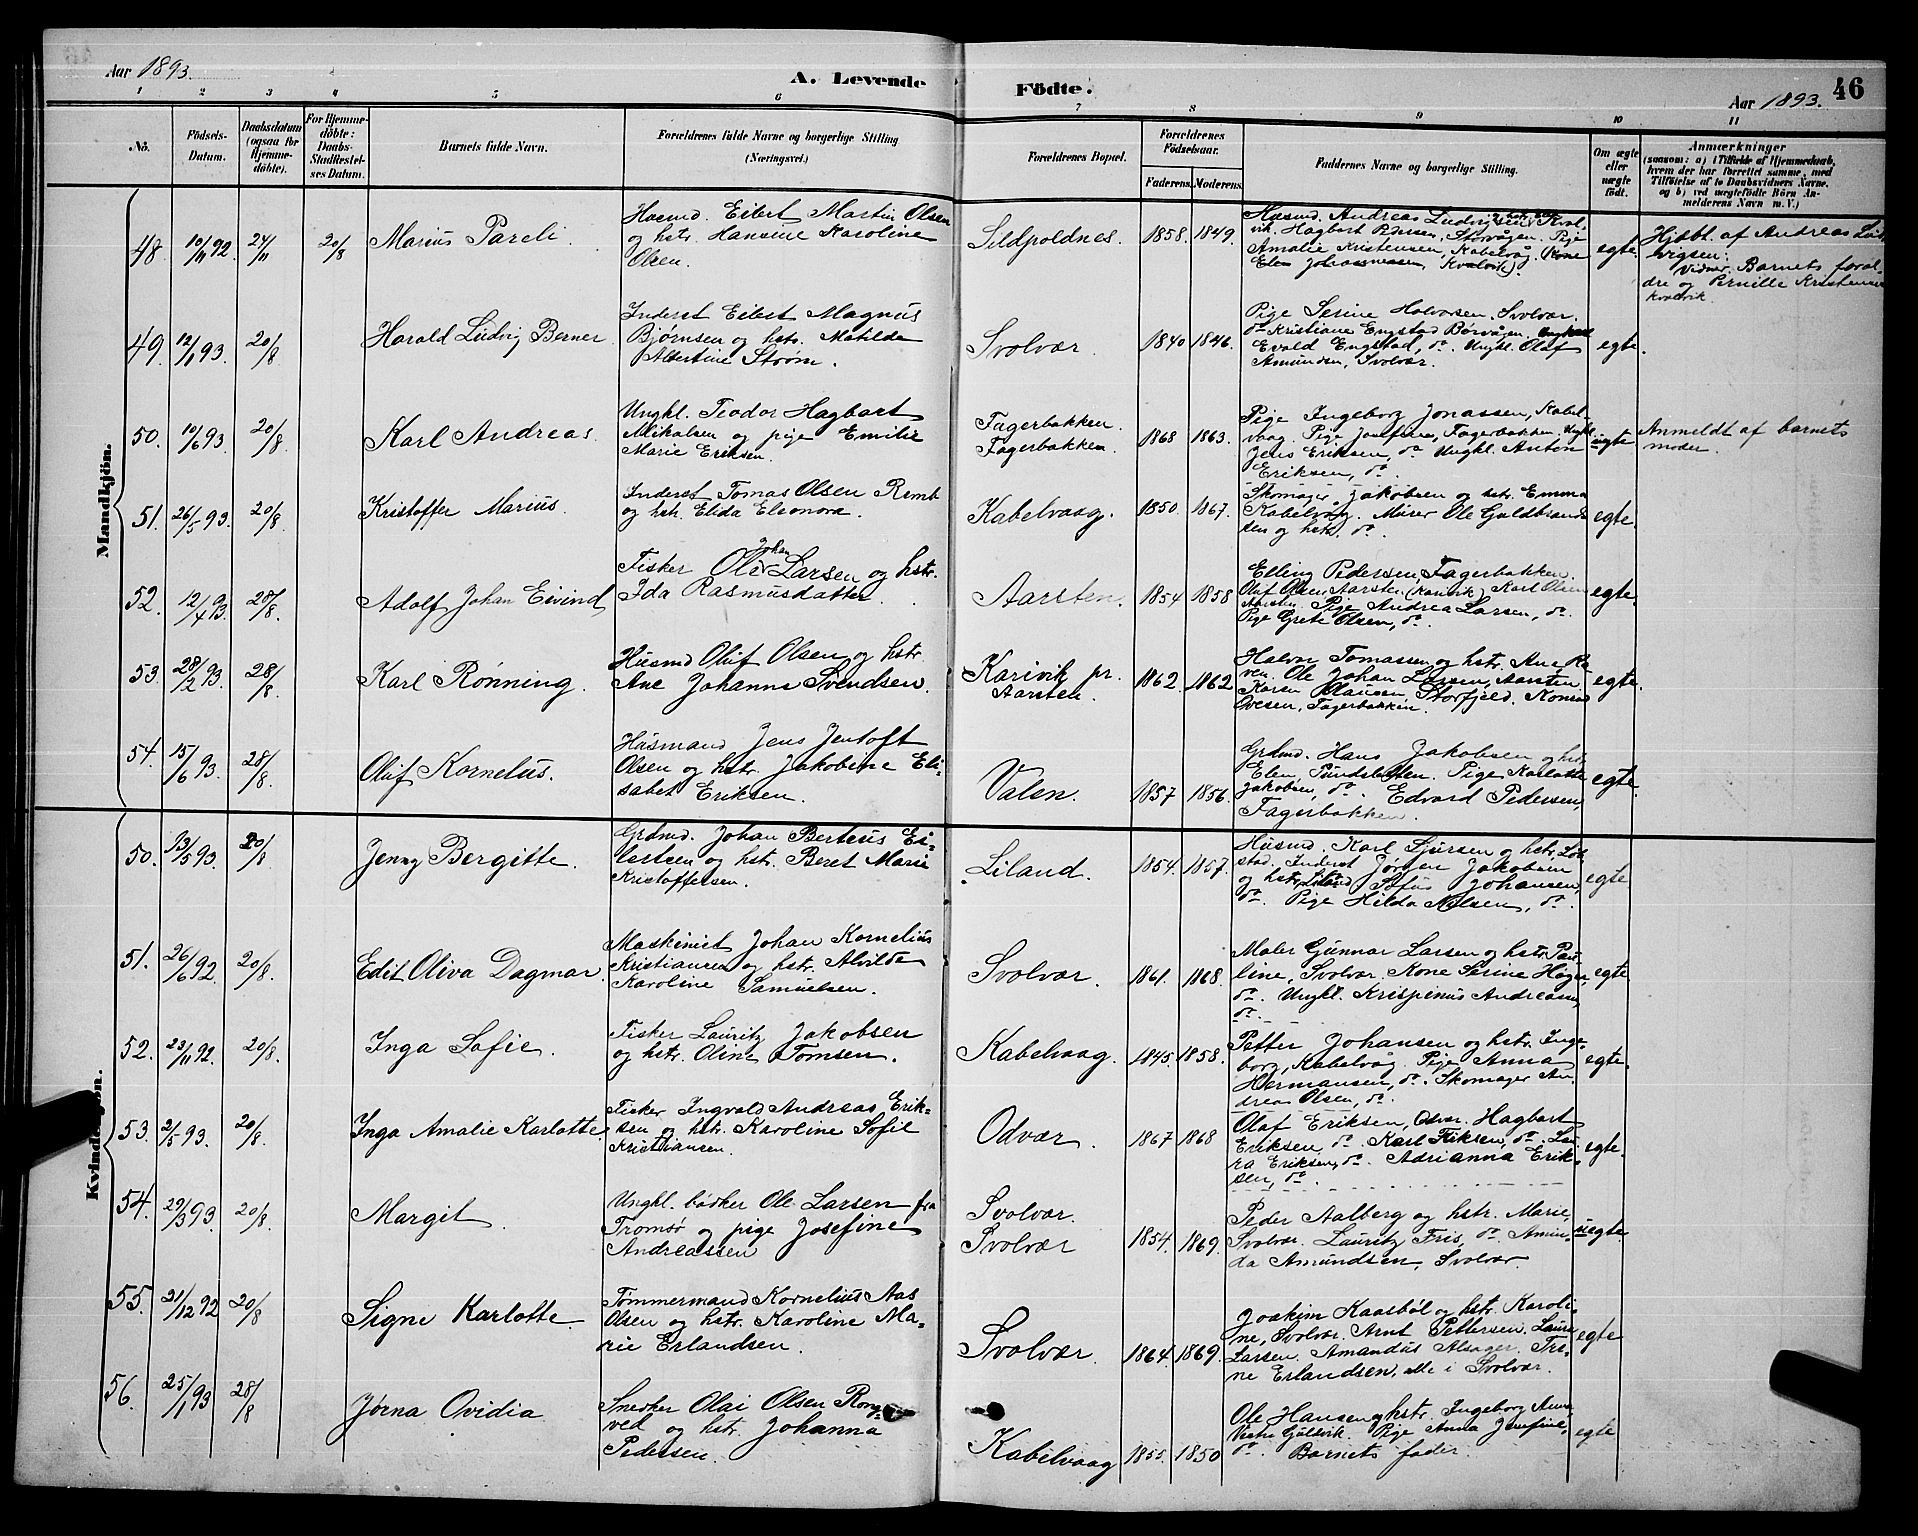 Aar 1893.
A. Levende
Födte.
Aar 1893.
46
1 2 3 4 5 6 7 8 9 10 11
No.
Födsels-Datum.
Daabsdatum (ogsaa for Hjemme-döbte).
For Hjemme-döbte: Daabs-Stadfæstel-ses Datum.
Barnets fulde Navn.
Forældrenes fulde Navne og borgerlige Stilling
(Næringsvei.)
Forældrenes Bopæl.
Forældrenes Födselsaar.
Faderens. Moderens.
Faddernes Navne og borgerlige Stilling.
Om ægte eller uægte födt.
Anmærkninger
(saasom: a) i Tilfælde af Hjemmedaab,
hvem der har forrettet samme, med
Tilföielse af to Daabsvidners Navne.
og b) ved uægtefödte Börn An-
melderens Navn m. V.)
Mandkjön.
48. 10/11 92. 24/11 20/8 Marius Pareli.
Husmd. Eibert Martin Olsen
og hstr. Hansine Karoline
Olsen.
Sildpoldnes. 1858. 1849.
Husmd. Andreas Ludvigsen, Kval-
vik. Hagbart Pedersen, Storvågen. Pige
Amalie Kristensen, Kabelvåg. (Kone
Elen Johannessen, Kvalvik).
egte.
Hjdbt. af Andreas Lud-
vigsen:
Vidner Barnets foræl-
dre og Pernille Kristensen
Kvalvik.
49. 12/1 93. 20/8 Harald Ludvig Berner
Inderst Eibert Magnus
Bjørnsen og hstr. Matilde
Albertine Strøm.
Svolvær 1840 1846.
Pige Serine Halvorsen, Svolvær.
do Kristiane Engstad Børvågen.
Evald Engstad, do. Ungkl. Olaf
Amundsen, Svolvær.
egte.
50. 10/6 93. 20/8 Karl Andreas.
Ungkl. Teodor Hagbart
Mikalsen og pige Emilie
Marie Eriksen.
Fagerbakken.
Fagerbakken 1868 1863.
Pige Ingeborg Jonassen, Kabel-
vaag. Pige Josefsen, Fagerbakken. Ungkl.
Jens Eriksen, do Ungkl. Anton
Eriksen, do.
uegte
Anmeldt af barnets
moder.
51. 26/5 93. 20/8 Kristoffer Marius.
Inderst Tomas Olsen Remb
og hstr. Elida Eleonora.
Kabelvaag. 1850. 1867.
Skomager Jakobsen og hstr. Emma
Kabelvåg. Murer Ole Guldbrand-
sen og hstr. do.
egte.
52. 12/4 93. 28/8 Adolf Johan Eivind
Fisker Ole Johan Larsen og hstr.
Ida Rasmusdatter.
Aarsten. 1854 1858
Elling Pedersen, Fagerbakken.
Olaf Olsen, Aarsten (Karivik) Karl Olsen
Aarsten. Pige Andrea Larsen, do.
Pige Grete Olsen, do.
egte.
53. 28/2 93. 28/8 Karl Rønning.
Husmd Oluf Olsen og hstr.
Ane Johanna Svendsen.
Karivik pr.
Aarsten. 1862. 1862
Halvor Tomassen og hstr. Ane, Ra-
ven. Ole Johan Larsen, Aarsten.
Karen Clausen, Storfjeld. Konrad
Ovesen, Fagerbakken.
egte.
54. 15/6 93. 28/8 Oluf Kornelius.
Husmand Jens Jentoft
Olsen og hstr. Jakobine Eli-
sabet Eriksen.
Valen. 1857 1856.
Grdmd. Hans Jakobsen og hstr.
Elen, Pundsletten. Pige Karlotte
Jakobsen, do. Edvard Pedersen,
Fagerbakken.
egte.
Kvindekjön.
50. 13/5 93. 20/8 Jenny Bergitte.
Grdmd. Johan Berteus Ei-
lertsen og hstr. Beret Marie
Kristoffersen.
Liland. 1854. 1857.
Husmd. Karl Sjursen og hstr.
Inderst Jørgen Jakobsen
og hstr. Liland Sofus Johansen,
do. Pige Hilda Nilsen, do.
egte
51. 26/6 92. 20/8. Edit Oliva Dagmar
Maskinist Johan Kornelius
Kristiansen og hstr. Alvilde
Karoline Samuelsen.
Svolvær. 1861. 1868.
Maler Gunnar Larsen og hstr. Pau-
line, Svolvær. Kone Serine Høger,
do. Ungkl. Krispinus Andreasen,
do.
egte
52. 23/11 92. 20/8. Inga Sofie.
Fisker Lauritz Jakobsen
og hstr. Oline Tomsen.
Kabelvaag. 1845. 1858.
Petter Johansen og hstr. Inge-
borg, Kabelvåg. Pige Anna
Hermansen, do. Skomager An-
dreas Olsen, do.
egte.
53. 2/5 93. 20/8. Inga Amalie Karlotte
Fisker Ingvald Andreas Erik-
sen og hstr. Karoline Sofie
Kristiansen.
Odvær. 1867 1868
Olaf Eriksen, Odvær. Hagbart
Eriksen, do. Karl Eriksen, do. Lau-
ra Eriksen, do. Adrianna Erik-
sen, do.
egte.
54. 29/3 93. 20/8. Margit.
Ungkl. bødker Ole Larsen fra
Tromsø og pige Josefine
Andreassen
Svolvær.
Svolvær 1854. 1869.
Peder Aalberg og hstr. Marie,
Svolvær. Lauritz Fris, do. Amun-
da Amundsen, Svolvær.
uegte.
55. 21/12 92 20/8 Signe Karlotte.
Tømmermand Kornelius Aas
Olsen og hstr. Karoline Ma-
rie Erlandsen.
Svolvær. 1864. 1869.
Joakim Kaasbøl og hstr. Karoli-
ne, Svolvær. Arnt Pettersen. Laura
Larsen. Amandus Alsager. Tri-
ne Erlandsen, alle i Svolvær.
egte
56. 25/1 93 28/8 Jørna Ovidia
Snerker Olai Olsen Rong-
ved og hstr. Johanna
Pedersen.
Kabelvaag 1855. 1850
Ole Hansen og hstr. Ingeborg Anna
Vestre Gullvik. Pige Anna Josefine,
do. Barnets fader.
egte